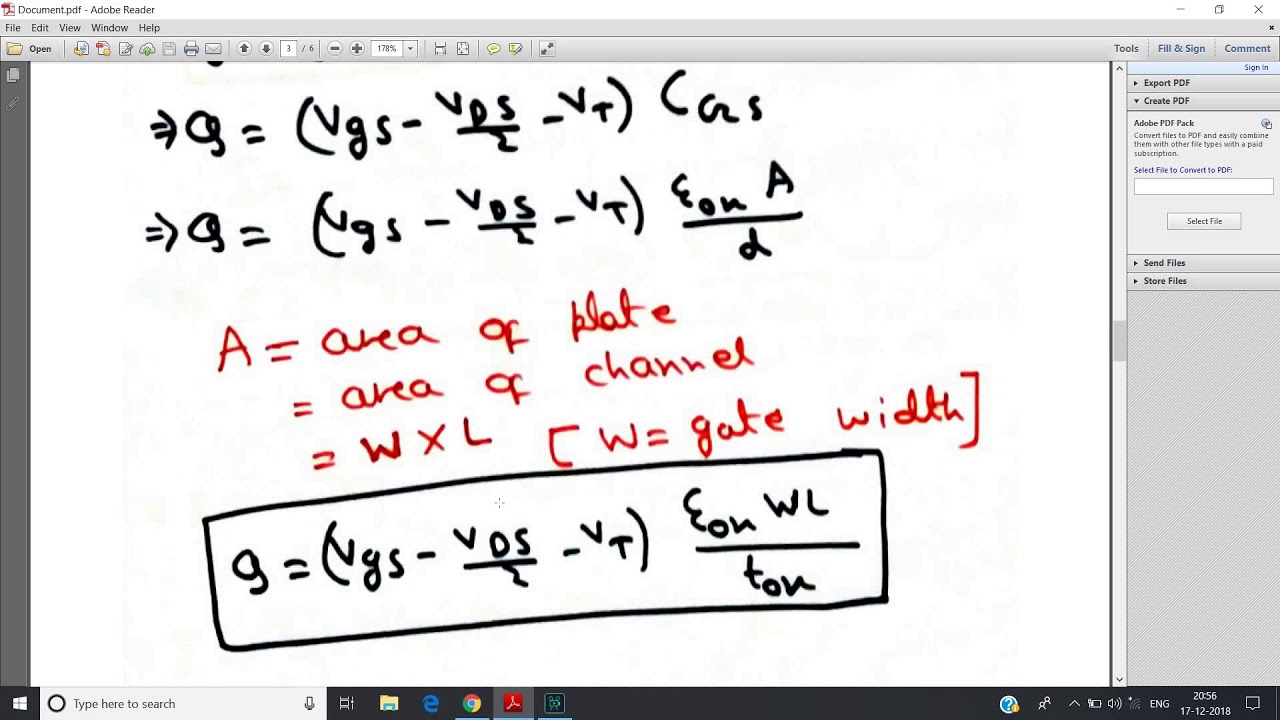 Document.pdf - Adobe Reader
File Edit View Window Help
Open 3 / 6 178% Tools Fill & Sign Comment
Sign In
Export PDF
Create PDF
Adobe PDF Pack
Convert files to PDF and easily combine
them with other file types with a paid
subscription.
Select File to Convert to PDF:
Select File
Send Files
Store Files
⇒ Q = (Vgs - VDS/2 - VT) CGS
⇒ Q = (Vgs - VDS/2 - VT) εox A/d
A = area of plate
= area of channel
= W X L [W = gate width]
Q = (Vgs - VDS/2 - VT) εox WL/tox
Type here to search
ENG 20:56
17-12-2018